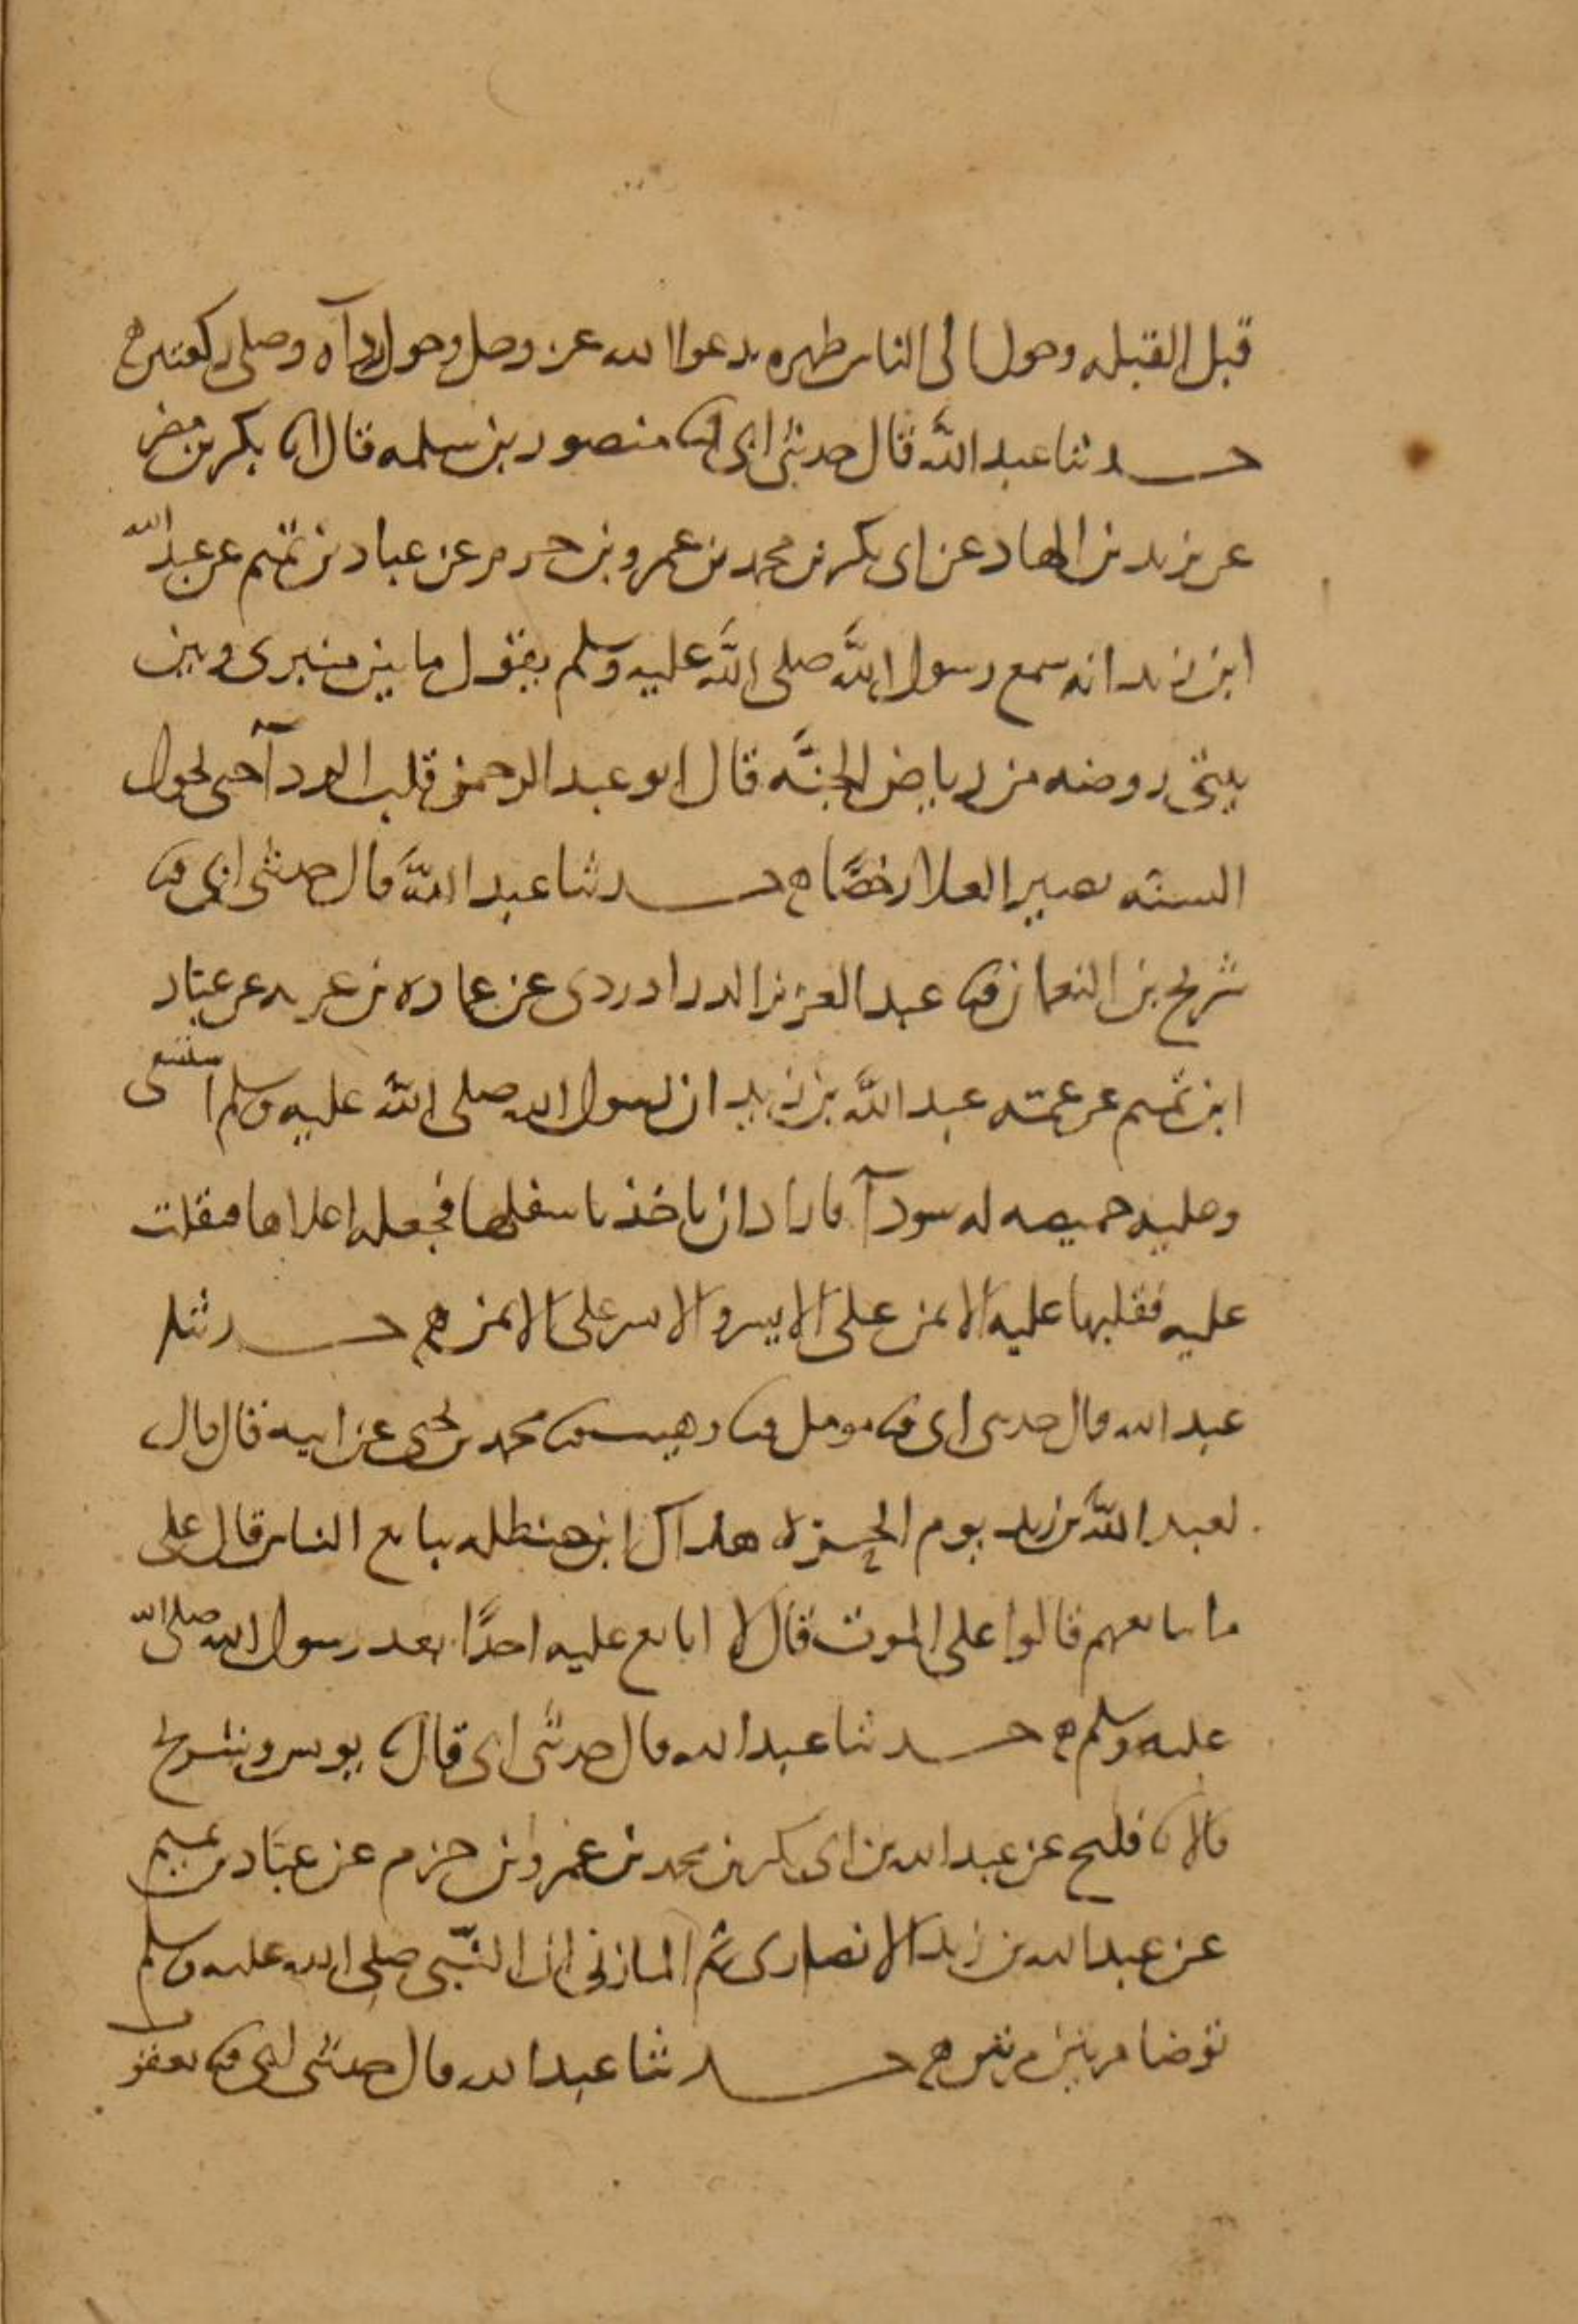 قبل القبله وحول الى الناس ظهره يدعوا الله عز وجل وحول ردآه وصلى ركعتين ه
حدثنا عبد الله قال حدثني ابي ثنا منصور بن سلمه قال انا بكر بن مضر
عن يزيد بن الهاد عن ابى بكر بن محمد بن عمرو بن حزم عن عباد بن تميم عن عبد الله
ابن زيد انه سمع رسول الله صلى الله عليه وسلم يقول ما بين منبرى وبين
بيتى روضه من رياض الجنه قال ابو عبد الرحمن قلب الردآ حتى تحول
السنه يصير الغلا رخصًا ه حدثنا عبد الله قال حدثنى ابى ثنا
سريج بن النعمان ثنا عبد العزيز الدراوردى عن عماره بن غزيه عن عباد
ابن تميم عن عمته عبد الله بن زيد ان رسول الله صلى الله عليه وسلم استسقى
وعليه خميصه له سودآ فاراد ان ياخذ باسفلها فجعله اعلاها فثقلت
عليه فقلبها عليه الايمن على الايسر والايسر على الايمن ه حدثنا
عبد الله قال حدثنى ابى ثنا مومل ثنا وهيب ثنا محمد بن يحيى عن ابيه قال قال
لعبد الله بن زيد يوم الحره هذاك ابن حنظله يبايع الناس قال على
ما يبايعهم قالوا على الموت قال لا ابايع عليه احدًا بعد رسول الله صلى الله
عليه وسلم ه حدثنا عبد الله قال حدثنى ابى قال ثنا يونس وسريج
قالا ثنا فليح عن عبد الله بن ابى بكر بن محمد بن عمرو بن حزم عن عباد بن تميم
عن عبد الله بن زيد الانصارى ثم المازنى ان النبى صلى الله عليه وسلم
توضا مرتين مرتين ه حدثنا عبد الله قال حدثنى ابى ثنا يعقوب